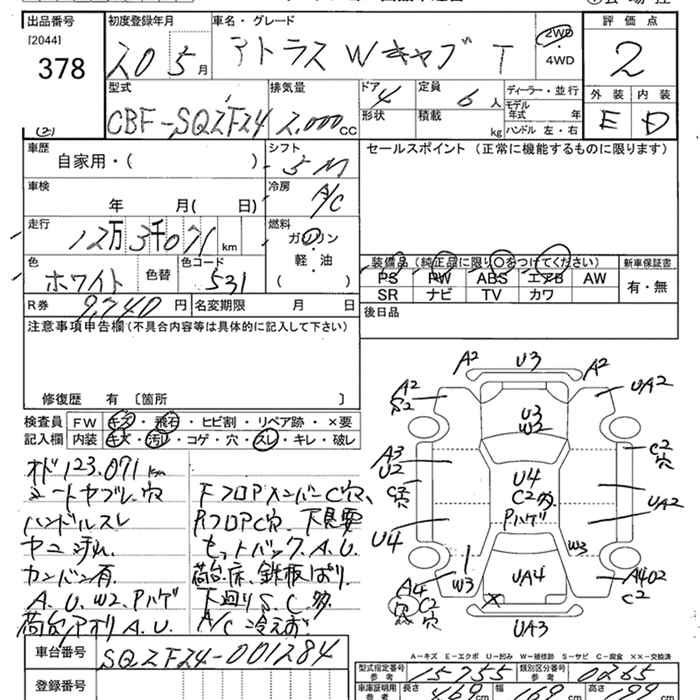 出品番号 初度登録年月 車名・グレード 評価点
[2044]
378 20 5月 アトラス Wキャブ T 2WD・4WD 2
型式 排気量 ドア 4 定員 6人 ディーラー・並行 外装 内装
CBF-SQ2F24 2,000cc 形状 積載 kg モデル年式 年 ハンドル 左・右 E D
車歴 シフト セールスポイント(正常に機能するものに限ります)
自家用・( ) 5M
車検 冷房
年 月( 日) A/C
走行 燃料
12万3千071km ガソリン・軽・油
色 色替 色コード 装備品(純正品に限り○をつけてください) 新車保証書
ホワイト 531 PS PW ABS エアB AW 有・無
SR ナビ TV カワ
R券 9,740円 名変期限 月 日 後日品
注意事項申告欄(不具合内容等は具体的に記入して下さい)
修復歴 有 〔箇所 〕
検査員 FW キズ・飛石・ヒビ割・リペア跡・×要
記入欄 内装 キズ・汚レ・コゲ・穴・スレ・キレ・破レ
オド123.071km
シートヤブレ、穴
ハンドルスレ
ヤニ汚れ
カンバン有
A.U.W2.Pハゲ
荷台アオリA.U.
FフロアメンバーC穴、
RフロアC穴、下見要
セットバックA.U.
荷台床、鉄板ばり
下廻りS.C多
A/C冷えず
A2 U3 A2
A2 S2 UA2
U3 W2
A3 U2 C2穴
C3穴
U4 C2多 Pハゲ UA2
U4 W3
A4 W3 UA4 A4 U2
穴 C2穴 C2
UA3
A-キズ E-エクボ U-凹ミ W-補修跡 S-サビ C-腐食 ××-交換済
車台番号 SQ2F24-001284
型式指定番号 参考 15755 類別区分番号 参考 0265
登録番号
車庫証明用 参考 長さ 469cm 幅 169cm 高さ 199cm